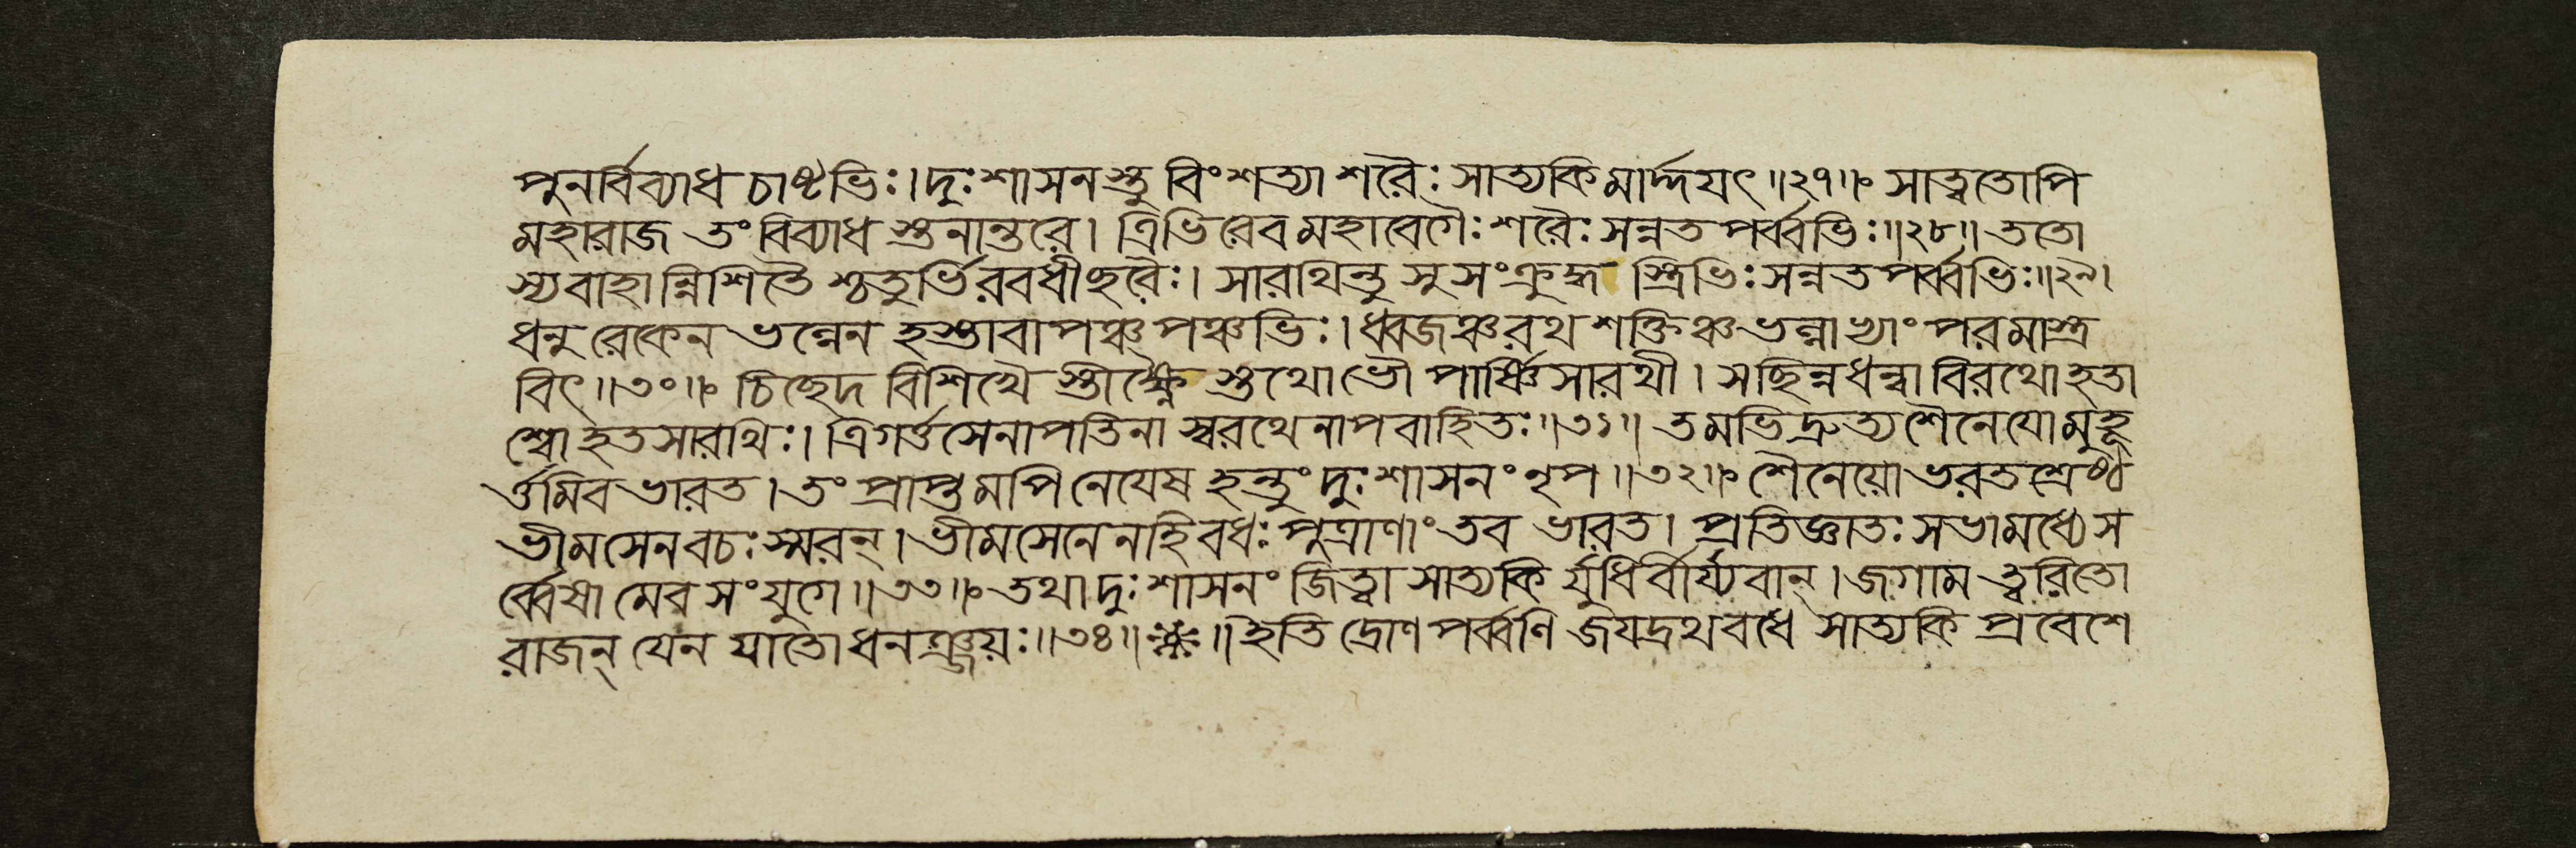 পুনর্বিব্যাধ চাষ্টভিঃ। দুঃশাসনস্তু বিংশত্যা শরৈঃ সাত্যকিমার্দ্দযৎ॥২৭॥ সাত্বতোপি
মহারাজ তং বিব্যাধ স্তনান্তরে। ত্রিভিরেব মহাবেগৈঃ শরৈঃ সন্নতপর্ব্বভিঃ॥২৮॥ ততো
স্যবাহান্নিশিতৈ শ্চতুর্ভিরবধীছরৈঃ। সারথিন্তু সুসংক্রুদ্ধ স্ত্রিভিঃ সন্নতপর্ব্বভিঃ॥২৯।
ধনুরেকেন ভল্লেন হস্তাবাপঞ্চ পঞ্চভিঃ। ধ্বজঞ্চ রথশক্তিঞ্চ ভল্লাভ্যাং পরমাস্ত্র
বিৎ॥৩০॥ চিছেদ বিশিখৈ স্তীক্ষ্ণৈ স্তথোভৌ পার্ষ্ণিসারথী। সছিন্নধন্বা বিরথো হতা
শ্বো হতসারথিঃ। ত্রিগর্ত্তসেনাপতিনা স্বরথেনাপবাহিতঃ॥৩১॥ তমভিদ্রুত্য শৈনেযো মুহূ
র্ত্তমিব ভারত। তং প্রাপ্তমপি নেযেষ হন্তুং দুঃশাসনং নৃপ॥৩২॥ শৈনেয়ো ভরতশ্রেষ্ঠ
ভীমসেনবচঃ স্মরন্। ভীমসেনেন হি বধঃ পুত্রাণাং তব ভারত। প্রতিজ্ঞাতঃ সভামধ্যে স
র্ব্বেষামেব সংযুগে॥৩৩॥ তথা দুঃশাসনং জিত্বা সাত্যকি র্যুধি র্বীর্য্যবান্। জগাম ত্বরিতো
রাজন্ যেন যাতো ধনঞ্জয়ঃ॥৩৪॥ ॥ ইতি দ্রোণপর্ব্বণি জযদ্রথবধে সাত্যকি প্রবেশে